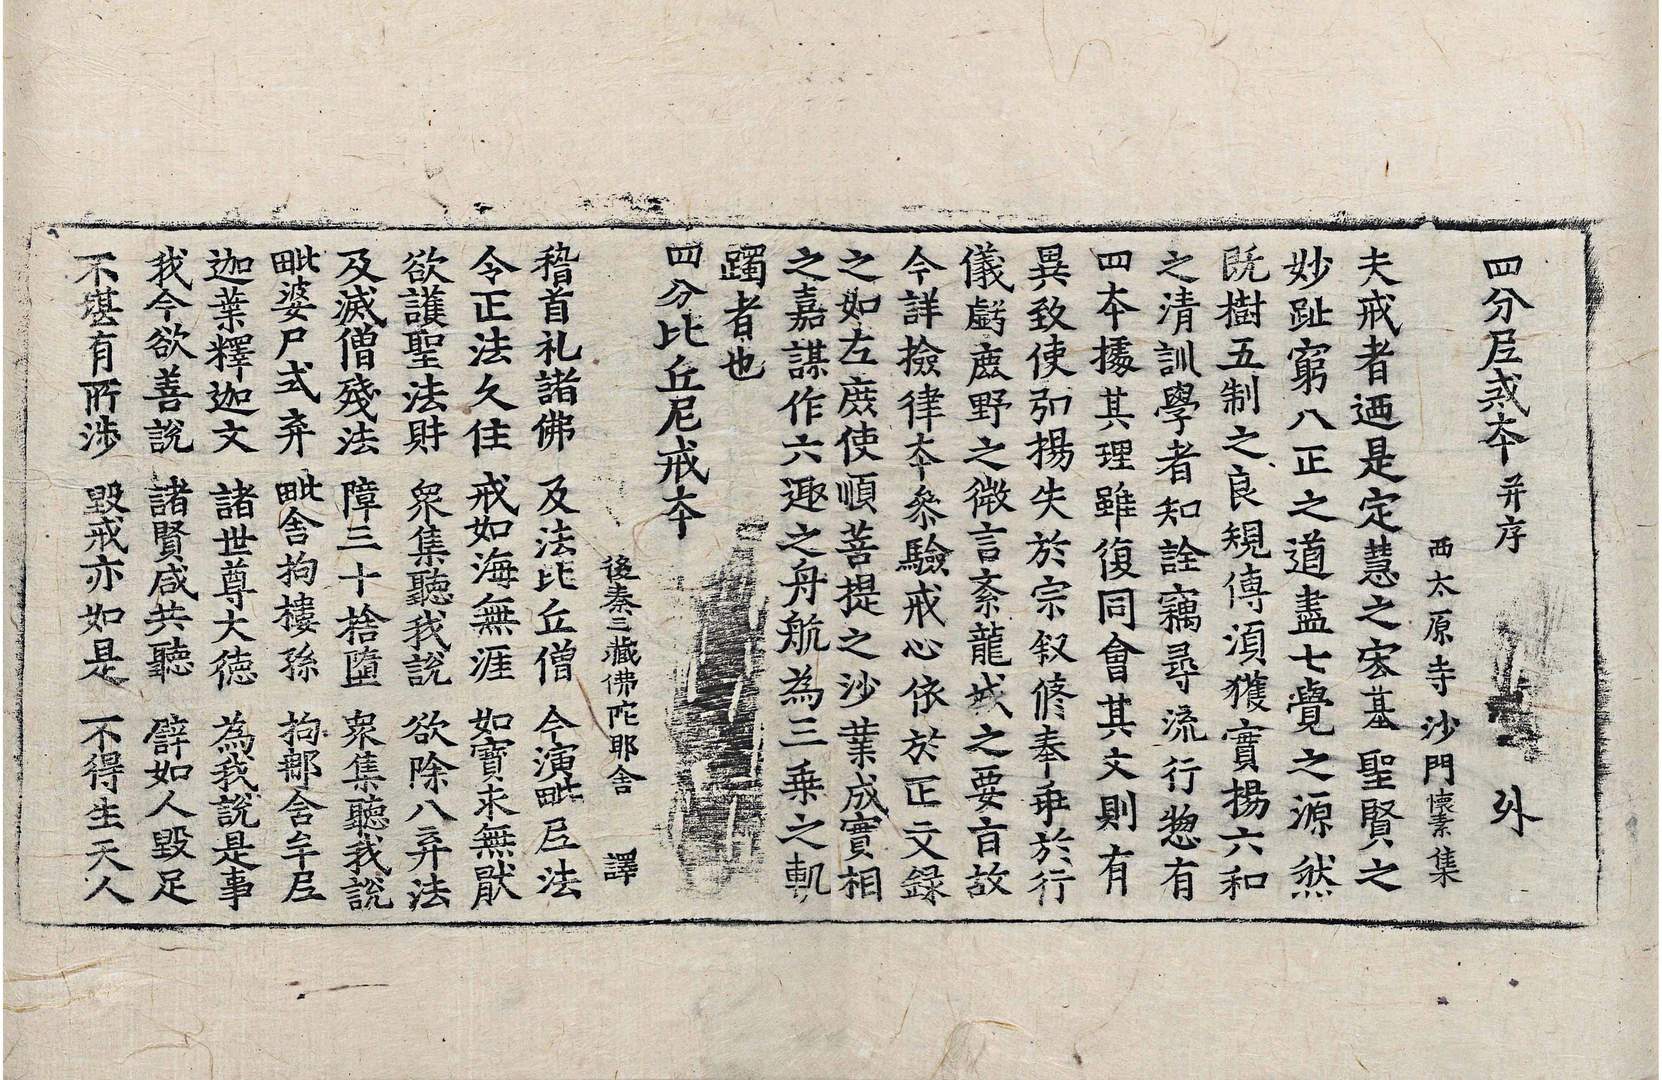 四分尼戒本 并序 外
西太原寺沙門懷素集
夫戒者迺是定慧之宏基聖賢之
妙趾窮八正之道盡七覺之源然
既樹五制之良規傳湏獲實揚六和
之清訓學者知詮竊尋流行惣有
四本據其理雖復同會其文則有
異致使弘揚失於宗叙修奉乖於行
儀虧鹿野之微言紊龍城之要旨故
今詳撿律本叅驗戒心依於正文錄
之如左庶使順菩提之沙葉成實相
之嘉謀作六趣之舟航為三乗之軌
躅者也
四分比丘尼戒本
後秦三藏佛陀耶舍 譯
稽首礼諸佛 及法比丘僧 今演毗尼法
令正法久住 戒如海無涯 如寳求無猒
欲護聖法財 衆集聽我說 欲除八弃法
及滅僧殘法 障三十捨墮 衆集聽我說
毗婆尸式弃 毗舍拘樓孫 拘那含牟尼
迦葉釋迦文 諸世尊大德 為我說是事
我今欲善說 諸賢咸共聽 譬如人毀足
不堪有所涉 毀戒亦如是 不得生天人